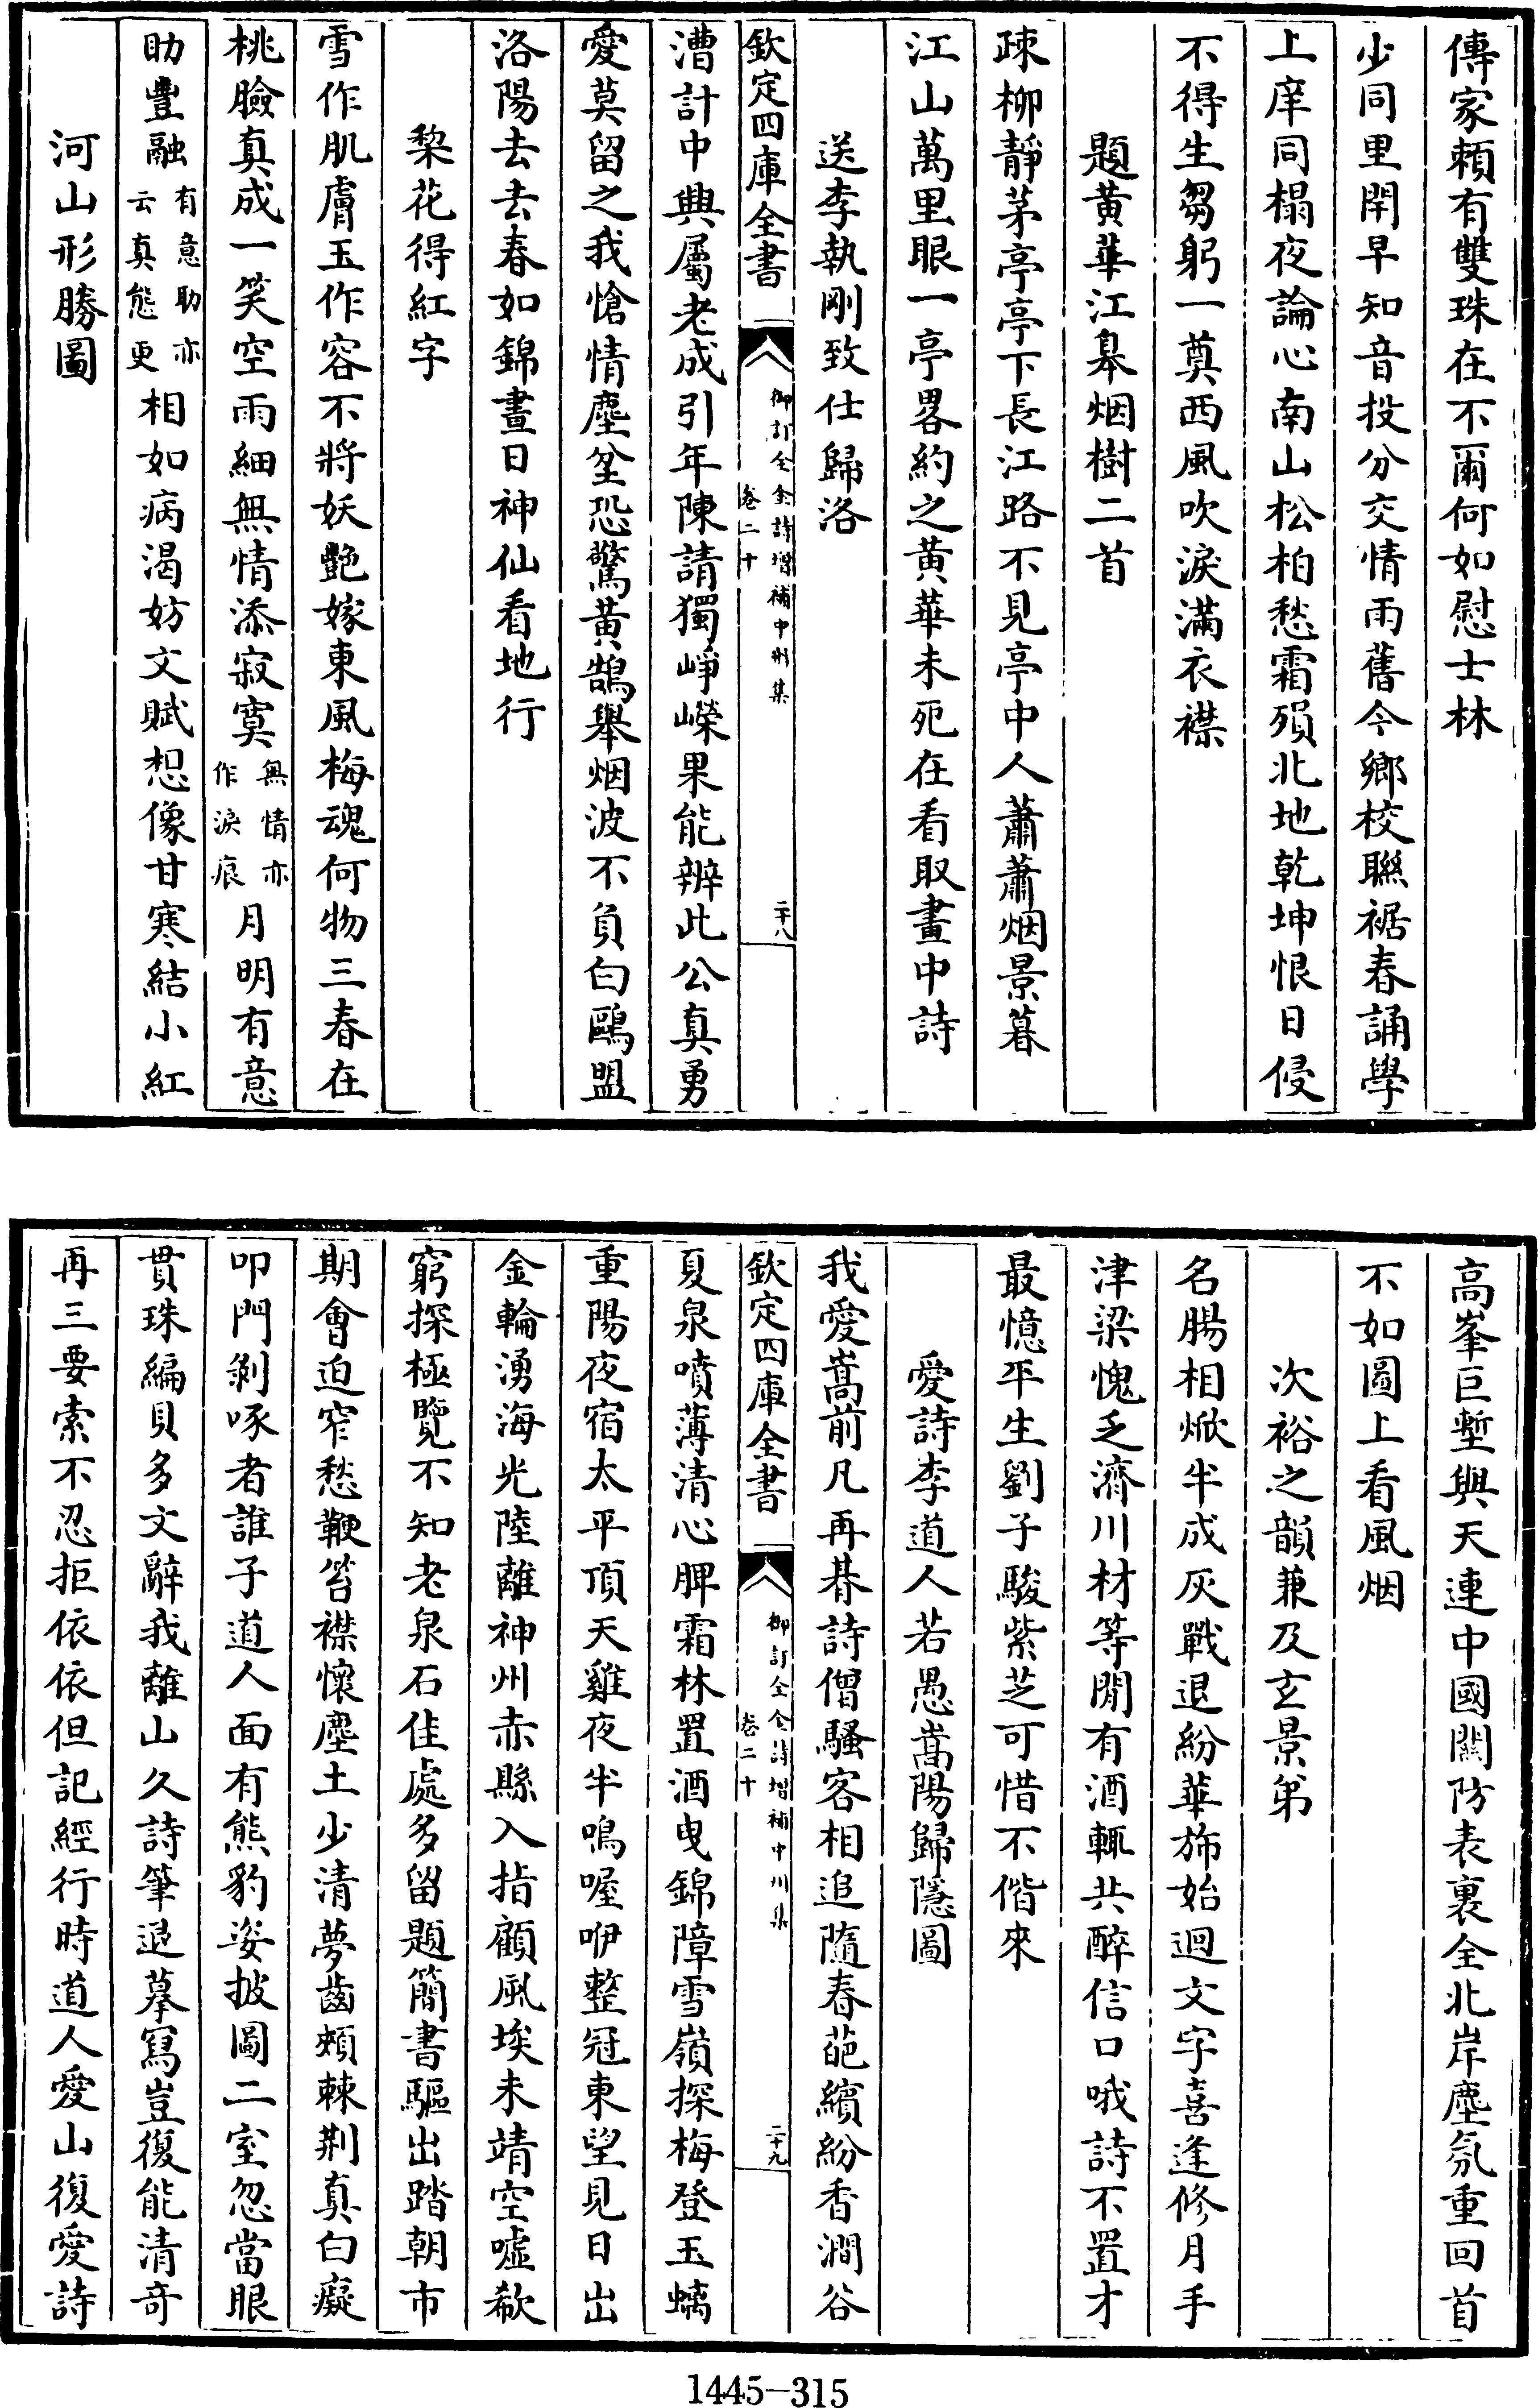 傳家賴有雙珠在不爾何如慰士林
少同里閈早知音投分交情雨舊今鄉校聯裾春誦學
上庠同榻夜論心南山松柏愁霜殞北地乾坤恨日侵
不得生芻躬一奠西風吹淚滿衣襟
題黃華江臯烟樹二首
疎柳靜茅亭亭下長江路不見亭中人蕭蕭烟景暮
江山萬里眼一亭畧約之黃華未死在看取畫中詩
送李執剛致仕歸洛
欽定四庫全書
御訂全金詩增補中州集
卷二十
二十八
漕計中興屬老成引年陳請獨崢嶸果能辨此公真勇
愛莫留之我愴情塵坌恐驚黃鵠舉烟波不負白鷗盟
洛陽去去春如錦晝日神仙看地行
棃花得紅字
雪作肌膚玉作容不將妖艷嫁東風梅魂何物三春在
桃臉真成一笑空雨細無情添寂寞無情亦作淚痕月明有意
助豐融有意助亦云真態更相如病渴妨文賦想像甘寒結小紅
河山形勝圖
高峯巨塹與天連中國關防表裏全北岸塵氛重回首
不如圖上看風烟
次裕之韻兼及玄景弟
名腸相焮半成灰戰退紛華斾始迴文字喜逢修月手
津梁愧乏濟川材等閒有酒輒共醉信口哦詩不置才
最憶平生劉子駿紫芝可惜不偕來
愛詩李道人若愚嵩陽歸隱圖
我愛嵩前凡再朞詩僧騷客相追隨春葩繽紛香澗谷
欽定四庫全書
御訂全金詩增補中州集
卷二十
二十九
夏泉噴薄清心脾霜林置酒曳錦障雪嶺探梅登玉螭
重陽夜宿太平頂天雞夜半鳴喔咿整冠東望見日出
金輪湧海光陸離神州赤縣入指顧風埃未靖空噓欷
窮探極覽不知老泉石佳處多留題簡書驅出踏朝市
期會迫窄愁鞭笞襟懷塵土少清夢齒頰棘荆真白癡
叩門剝啄者誰子道人面有熊豹姿披圖二室忽當眼
貫珠編貝多文辭我離山久詩筆退摹寫豈復能清奇
再三要索不忍拒依依但記經行時道人愛山復愛詩
1445-315